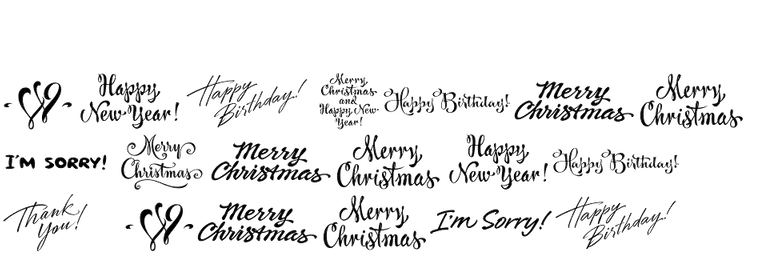 Happy
New Year!
Happy
Birthday!
Merry
Christmas
and
Happy New
Year!
Happy Birthday!
Merry
Christmas
Merry
Christmas
I'M SORRY!
Merry
Christmas
Merry
Christmas
Merry
Christmas
Happy
New Year!
Happy Birthday!
Thank
You!
Merry
Christmas
Merry
Christmas
I'm Sorry!
Happy
Birthday!